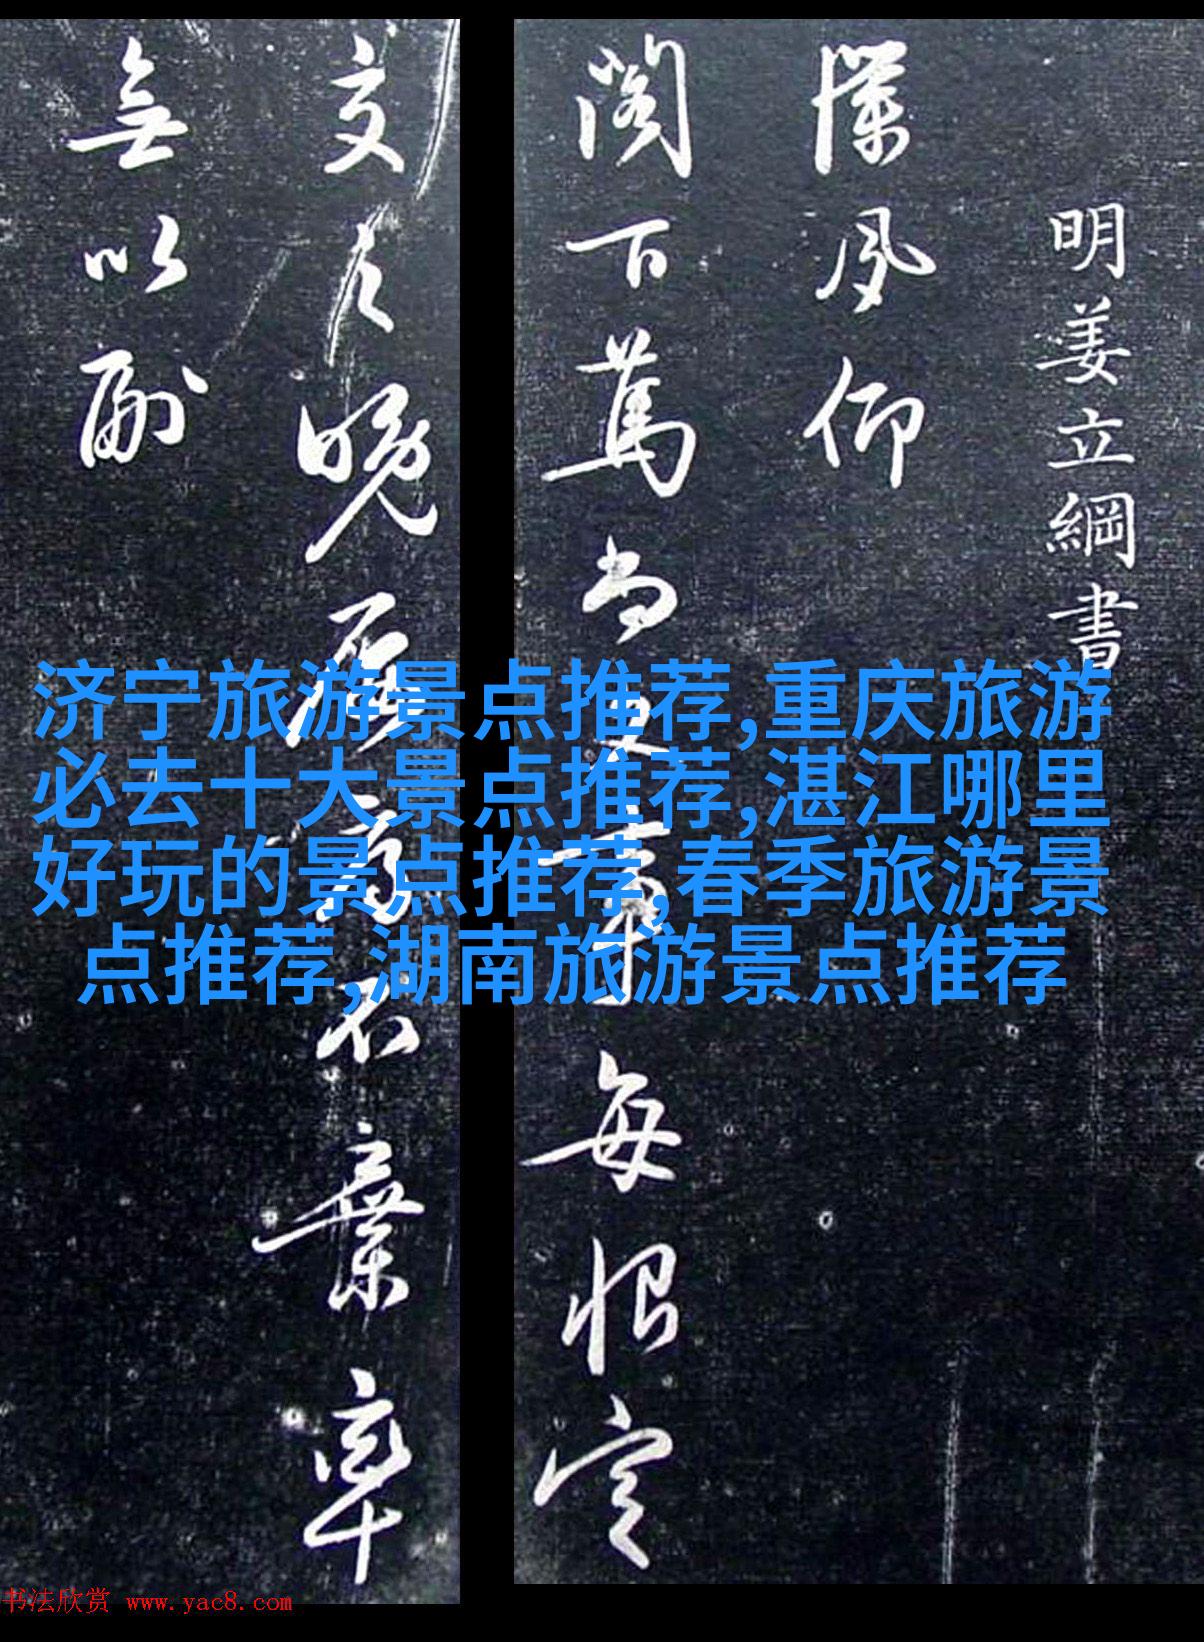 明姜立綱書
深夙仰
閣下萬尚
每恨定
交之晚
不棄率
無以副
济宁旅游景点推荐,重庆旅游
必去十大景点推荐,湛江哪里
好玩的景点推荐,春季旅游景
点推荐,湖南旅游景点推荐
书法欣赏 www.yac8.com